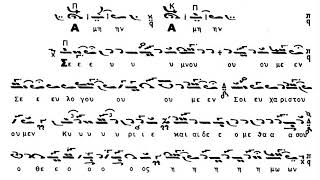 Α μη ην Α μη ην
Σε ε ε υ υ υ μνου ου ου με εν
Σε ε ευ λογου ου ου με εν Σοι ευ χα ρι στου
ου μεν Κυ υ υ υ ρι ι ε και αι δε ε ο με θα α α σου
ο θε ο ο ο ο ος η η η η η μω ων